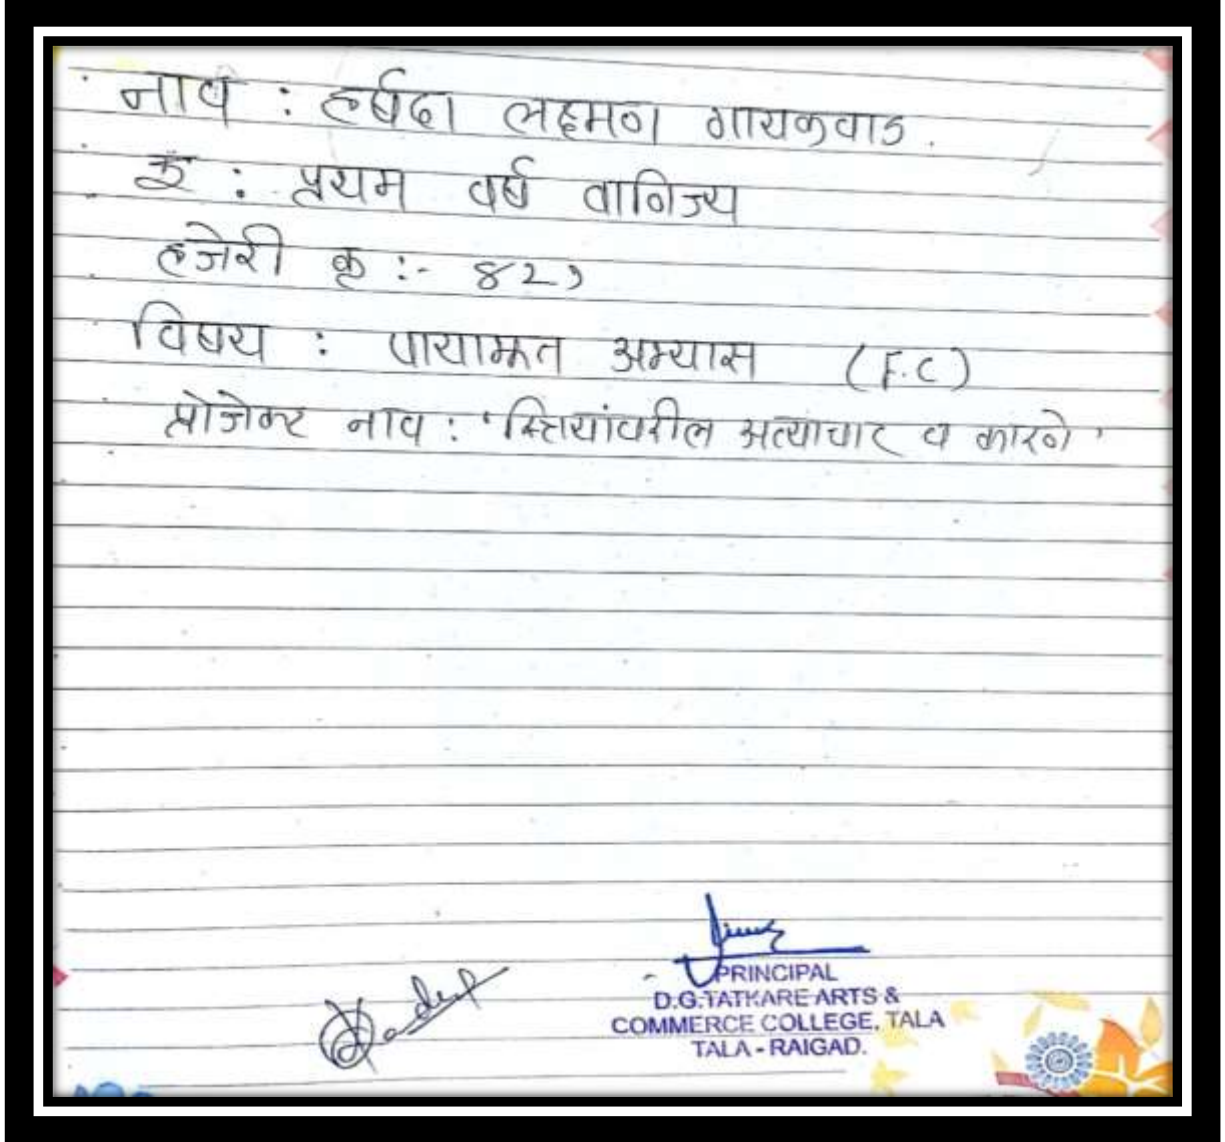 नाव : हर्षदा लक्ष्मण गायकवाड.
इ : प्रथम वर्ष वाणिज्य
हजेरी कृ :-
विषय : पायाभूत अभ्यास (F.C)
प्रोजेक्ट नाव : 'स्त्रियांवरील अत्याचार व कारणे'
PRINCIPAL
D.G.TATKARE ARTS &
COMMERCE COLLEGE, TALA
TALA - RAIGAD.